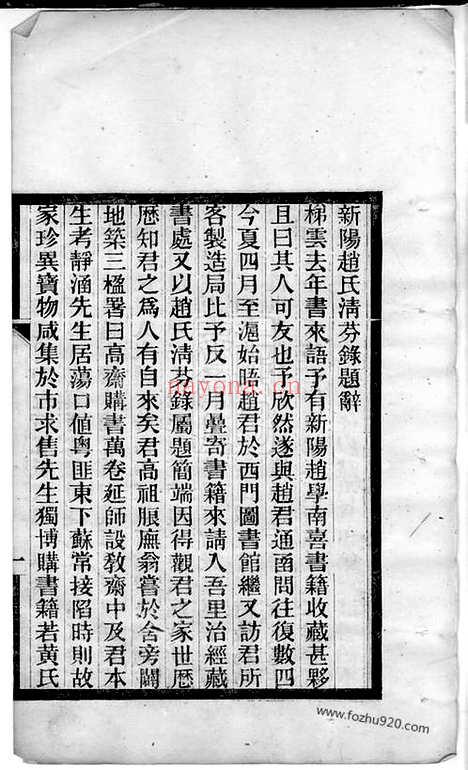 新陽趙氏清芬錄題辭
梯雲去年書來語予有新陽趙學南喜書籍收藏甚夥
且曰其人可友也予欣然遂與趙君通函問往復數四
今夏四月至滬始晤趙君於西門圖書館繼又訪君所
客製造局比予反一月疊寄書籍來請入吾里治經藏
書處又以趙氏清芬錄屬題簡端因得觀君之家世歷
歷知君之爲人有自來矣君高祖脹廡翁嘗於舍旁闢
地築三楹署曰高齋購書萬卷延師設教齋中及君本
生考靜涵先生居蕩口值粵匪東下蘇常接陷時則故
家珍異寶物咸集於市求售先生獨博購書籍若黃氏
一
nayona.cn
www.fozhu920.com